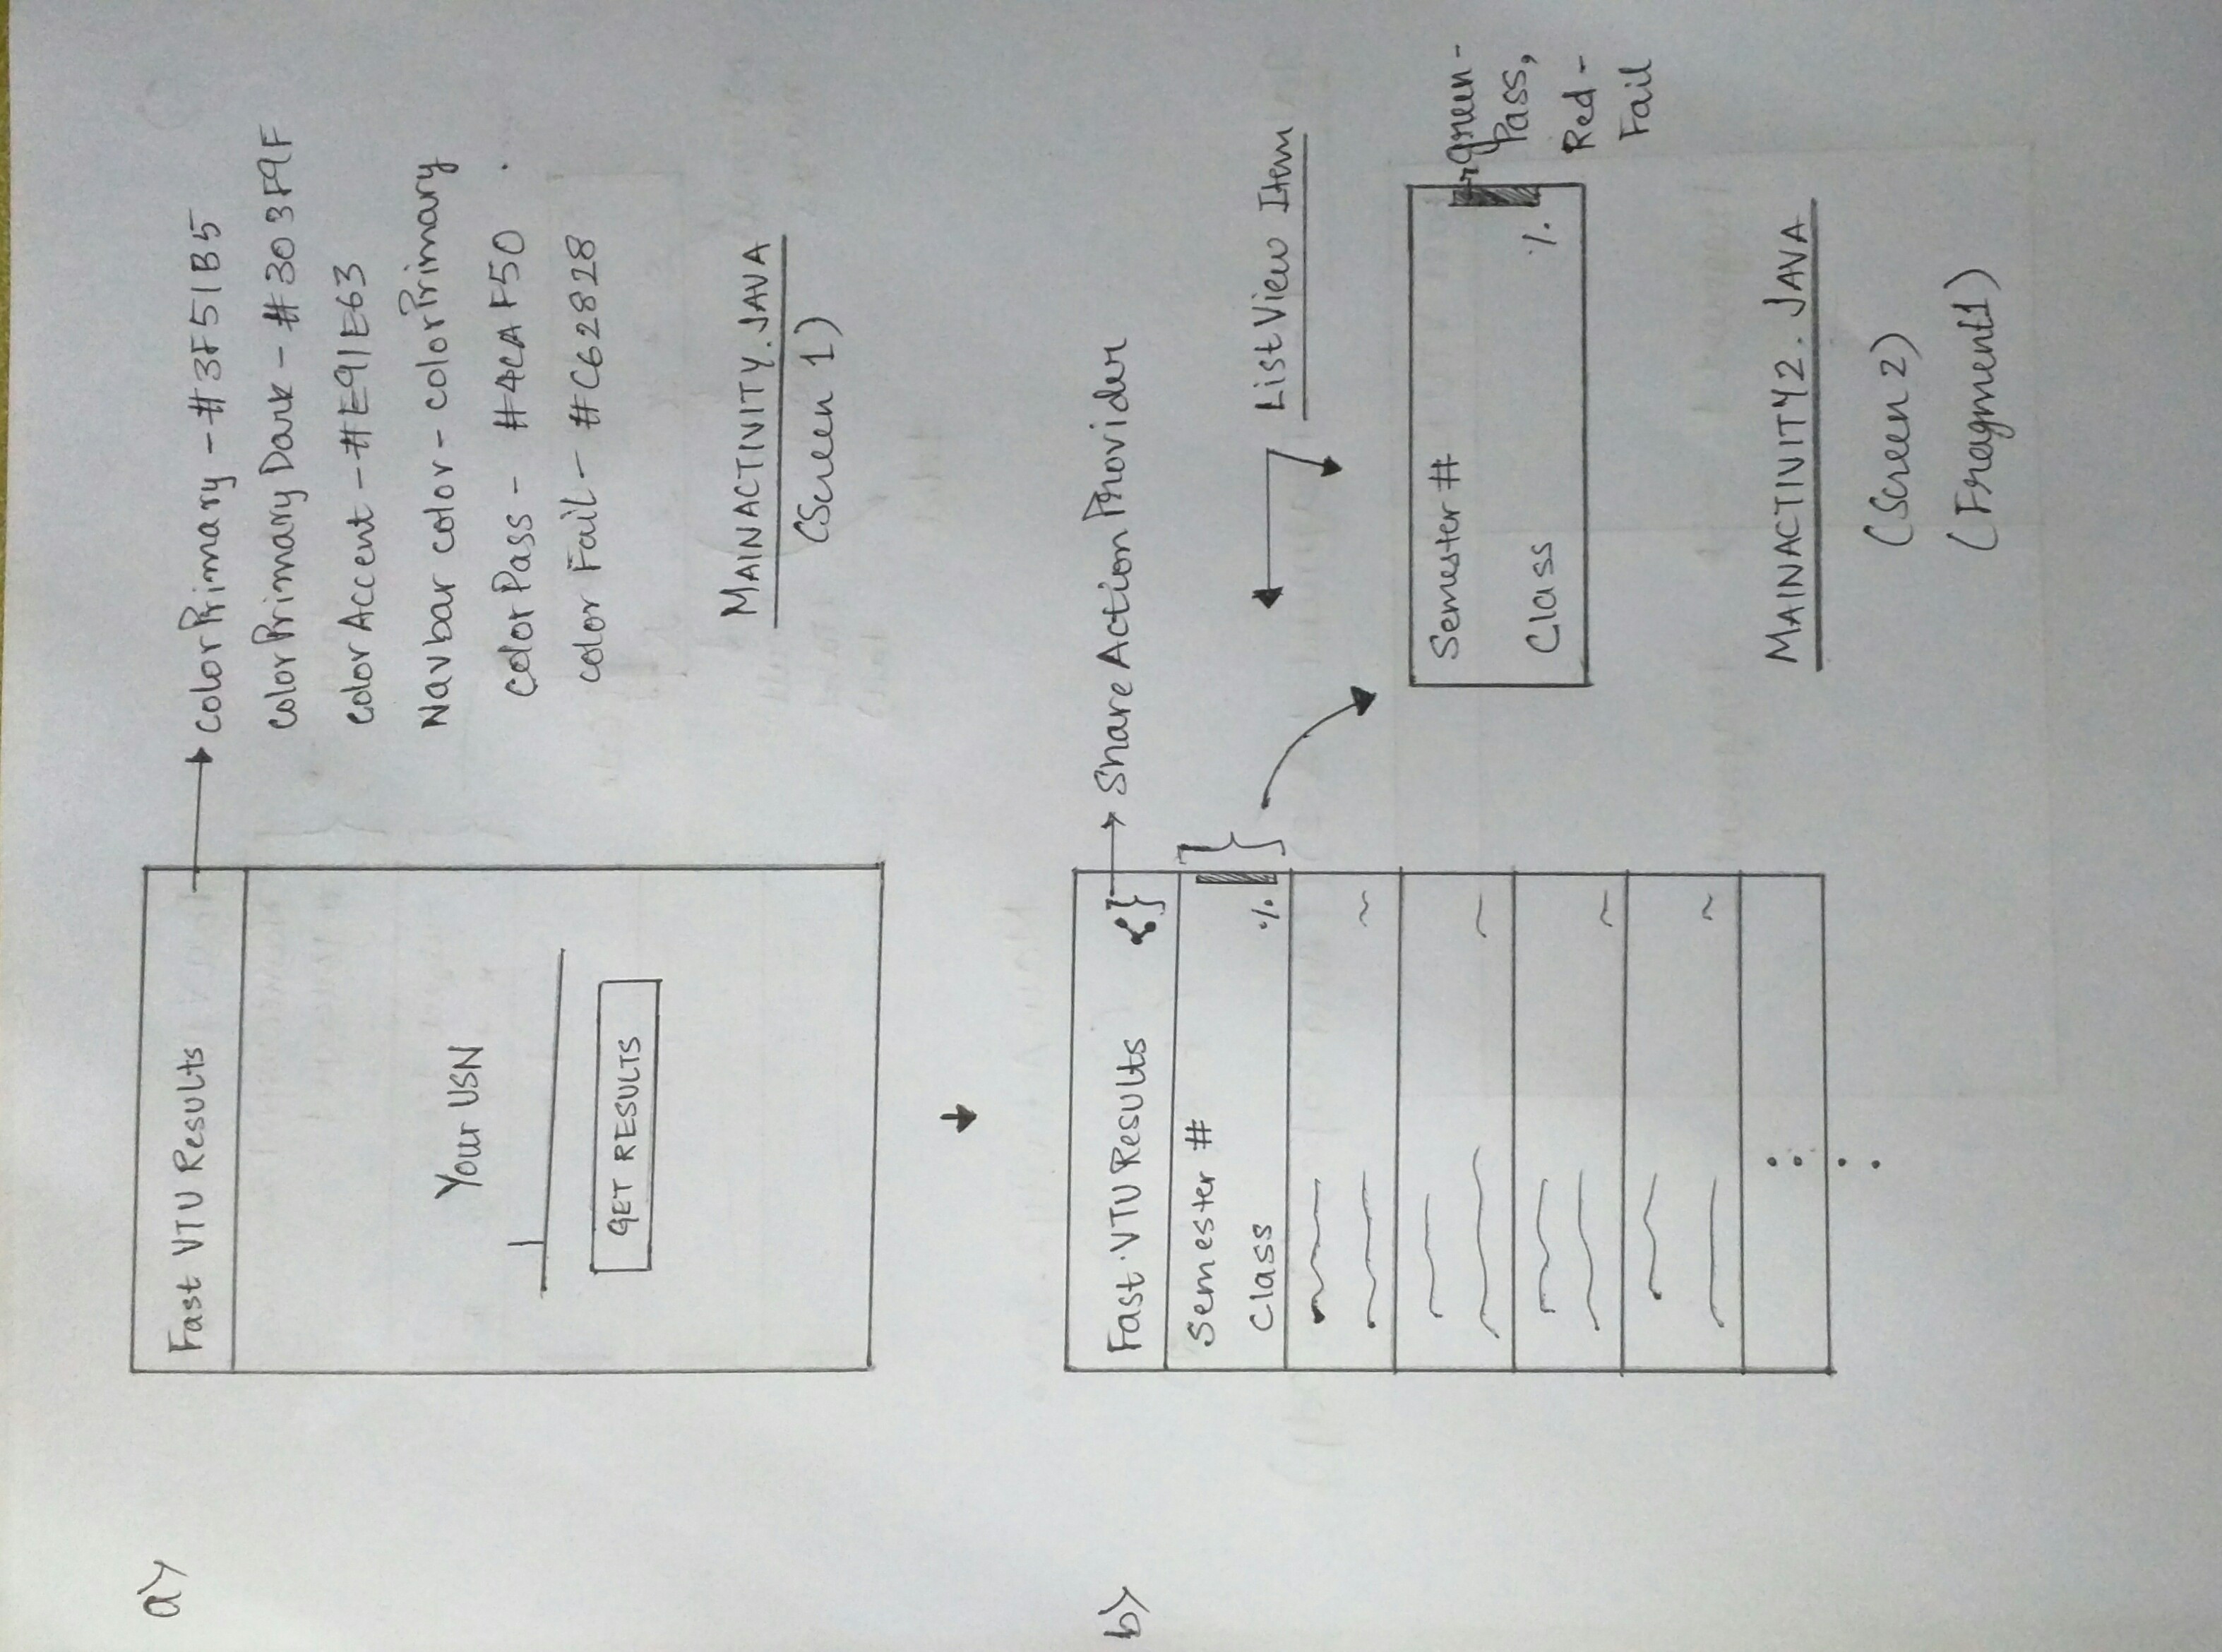 a)
Fast VTU Results
Your USN
GET RESULTS
colorPrimary - #3F51B5
colorPrimaryDark - #303F9F
colorAccent - #E91E63
Navbar color - colorPrimary
colorPass - #4CAF50
color Fail - #C62828
MAINACTIVITY.JAVA
(Screen 1)
b)
Fast VTU Results
Semester #
Class %
Share Action Provider
List View Item
Semester #
Class %
green -
Pass,
Red -
Fail
MAINACTIVITY2.JAVA
(Screen 2)
(Fragment1)